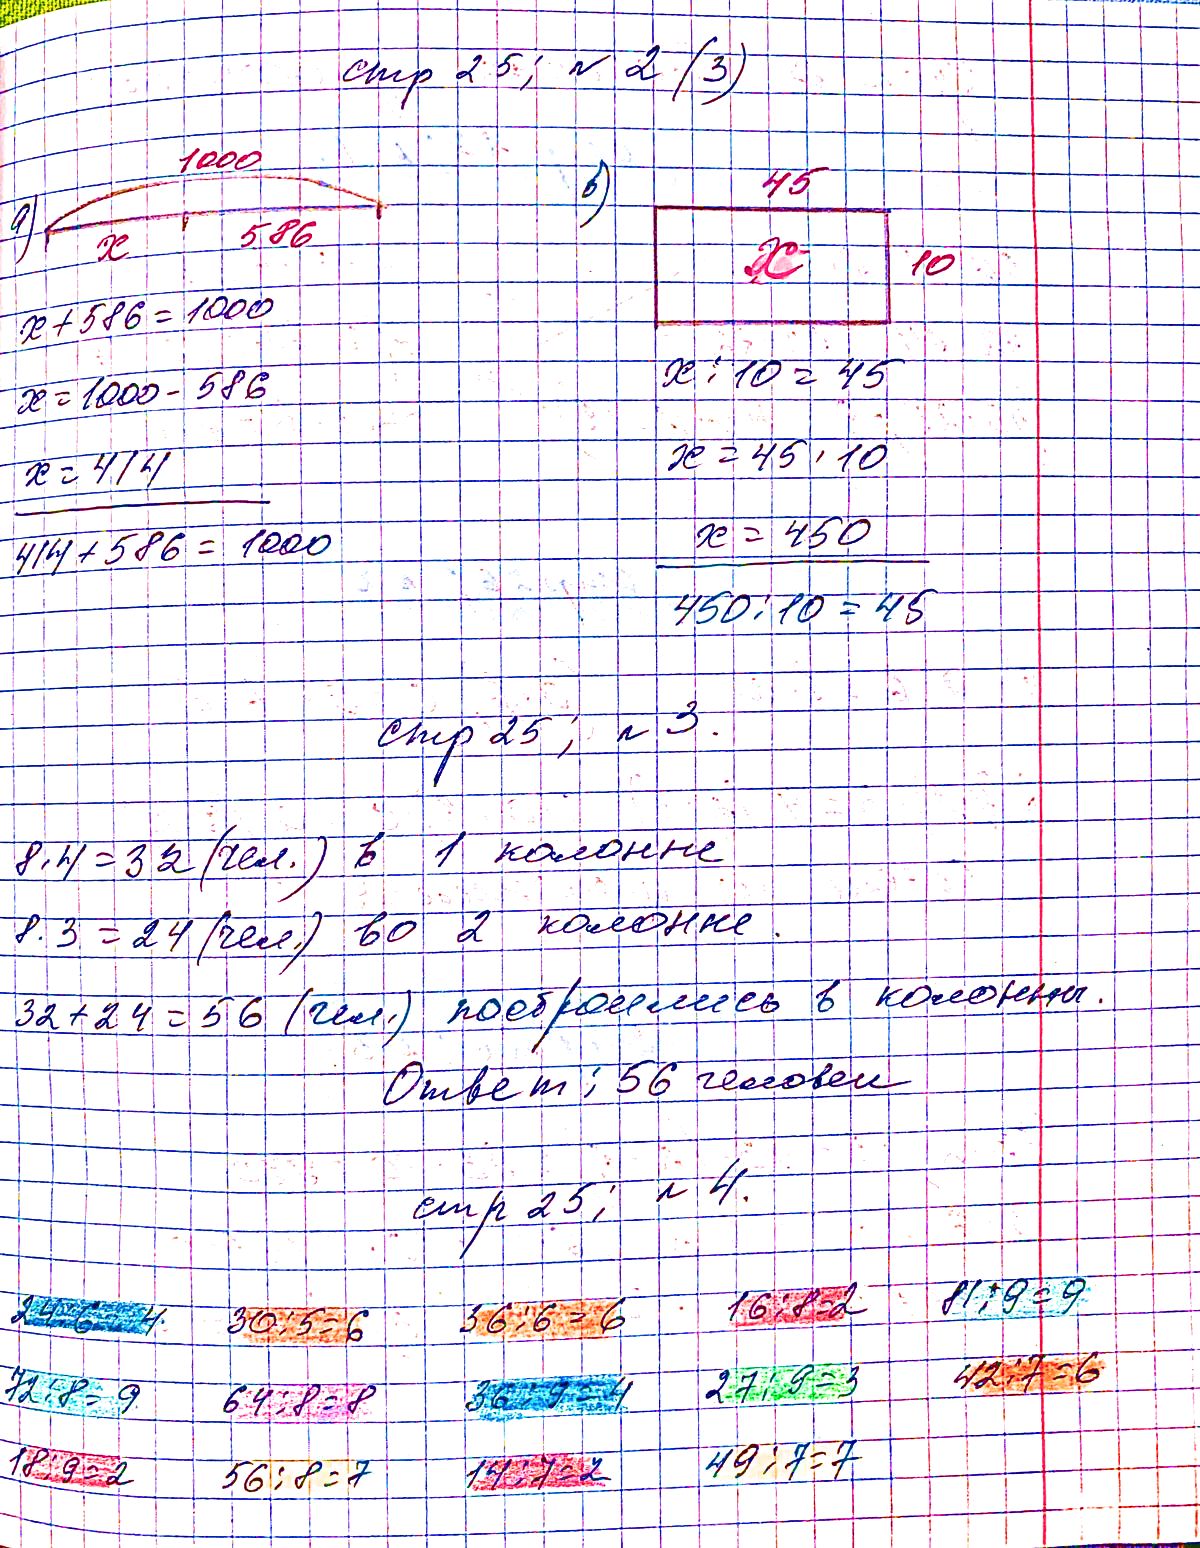 стр 25; № 2 (3)
а)
1000
x 586
x + 586 = 1000
x = 1000 - 586
x = 414
414 + 586 = 1000
б)
45
x 10
x : 10 = 45
x = 45 · 10
x = 450
450 : 10 = 45
стр 25; № 3.
8 · 4 = 32 (чел.) в 1 колонне
8 · 3 = 24 (чел.) во 2 колонне.
32 + 24 = 56 (чел.) построились в колонны.
Ответ: 56 человек
стр 25; № 4.
24:6=4 30:5=6 36:6=6 16:8=2 81:9=9
72:8=9 64:8=8 36:9=4 27:9=3 42:7=6
18:9=2 56:8=7 14:7=2 49:7=7